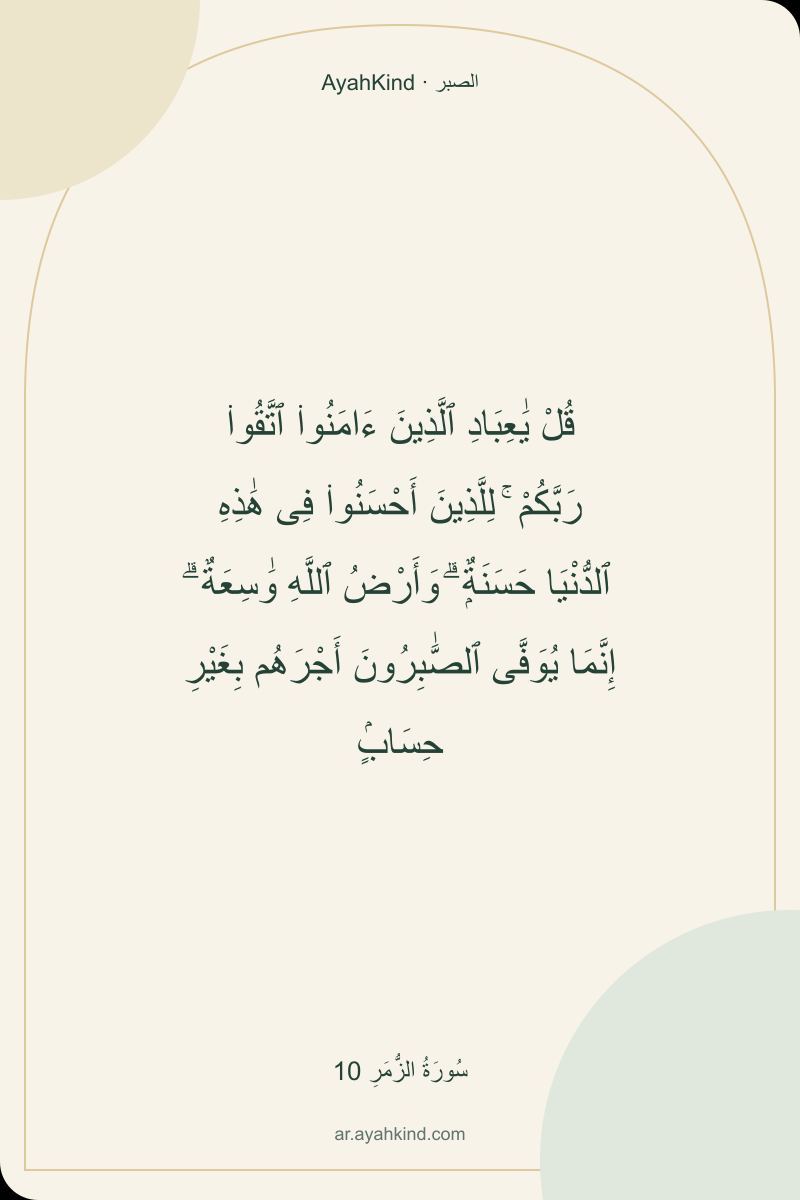 AyahKind · الصبر
قُلْ يَٰعِبَادِ ٱلَّذِينَ ءَامَنُوا۟ ٱتَّقُوا۟
رَبَّكُمْ ۚ لِلَّذِينَ أَحْسَنُوا۟ فِى هَٰذِهِ
ٱلدُّنْيَا حَسَنَةٌۭ ۗ وَأَرْضُ ٱللَّهِ وَٰسِعَةٌ ۗ
إِنَّمَا يُوَفَّى ٱلصَّٰبِرُونَ أَجْرَهُم بِغَيْرِ
حِسَابٍۢ
سُورَةُ الزُّمَرِ 10
ar.ayahkind.com